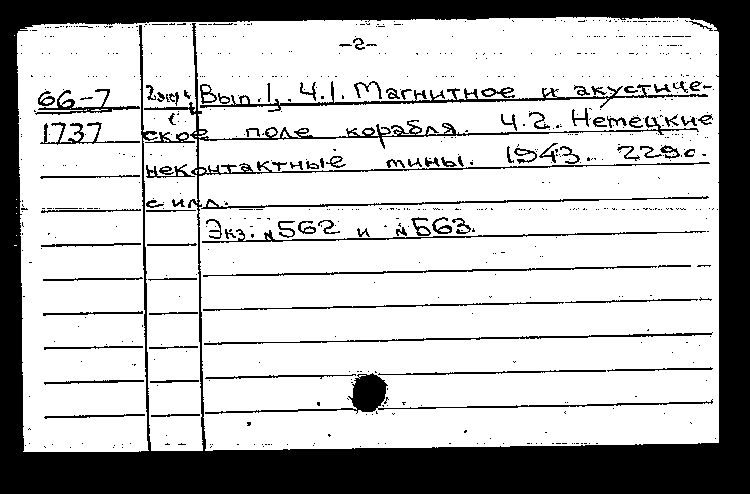 -2-
66-7 2 экз. Вып. 1, Ч.1. Магнитное и акустиче-
1737 ское поле корабля. Ч.2. Немецкие
неконтактные мины. 1943. 229с.
с илл.
Экз. №562 и №563.